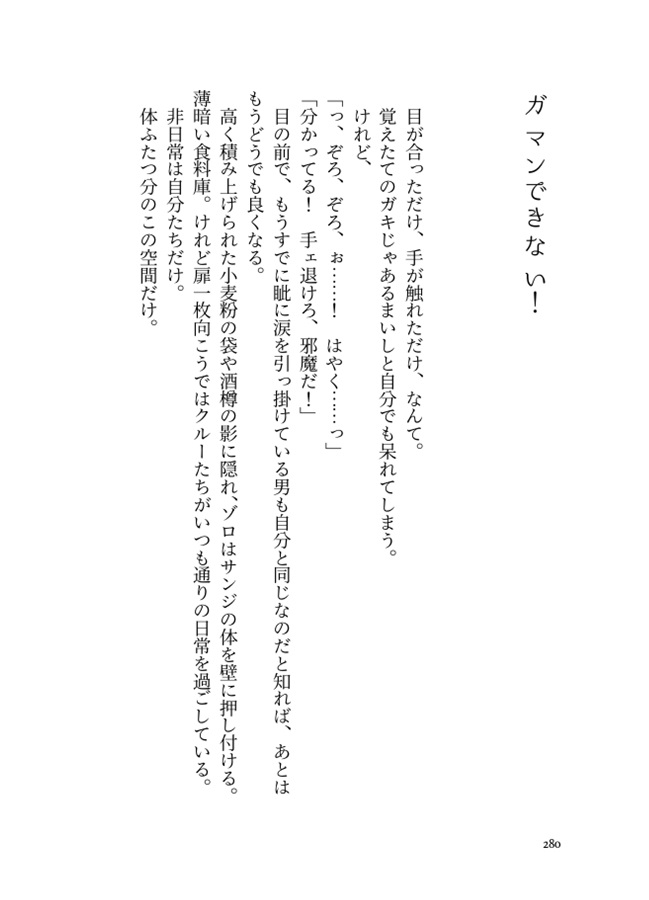 ガマンできない!
目が合っただけ、手が触れただけ、なんて。
覚えたてのガキじゃあるまいしと自分でも呆れてしまう。
けれど、
「っ、ぞろ、ぞろ、ぉ……! はやく……っ」
「分かってる! 手ェ退けろ、邪魔だ!」
目の前で、もうすでに眦に涙を引っ掛けている男も自分と同じなのだと知れば、あとは
もうどうでも良くなる。
高く積み上げられた小麦粉の袋や酒樽の影に隠れ、ゾロはサンジの体を壁に押し付ける。
薄暗い食料庫。けれど扉一枚向こうではクルーたちがいつも通りの日常を過ごしている。
非日常は自分たちだけ。
体ふたつ分のこの空間だけ。
280